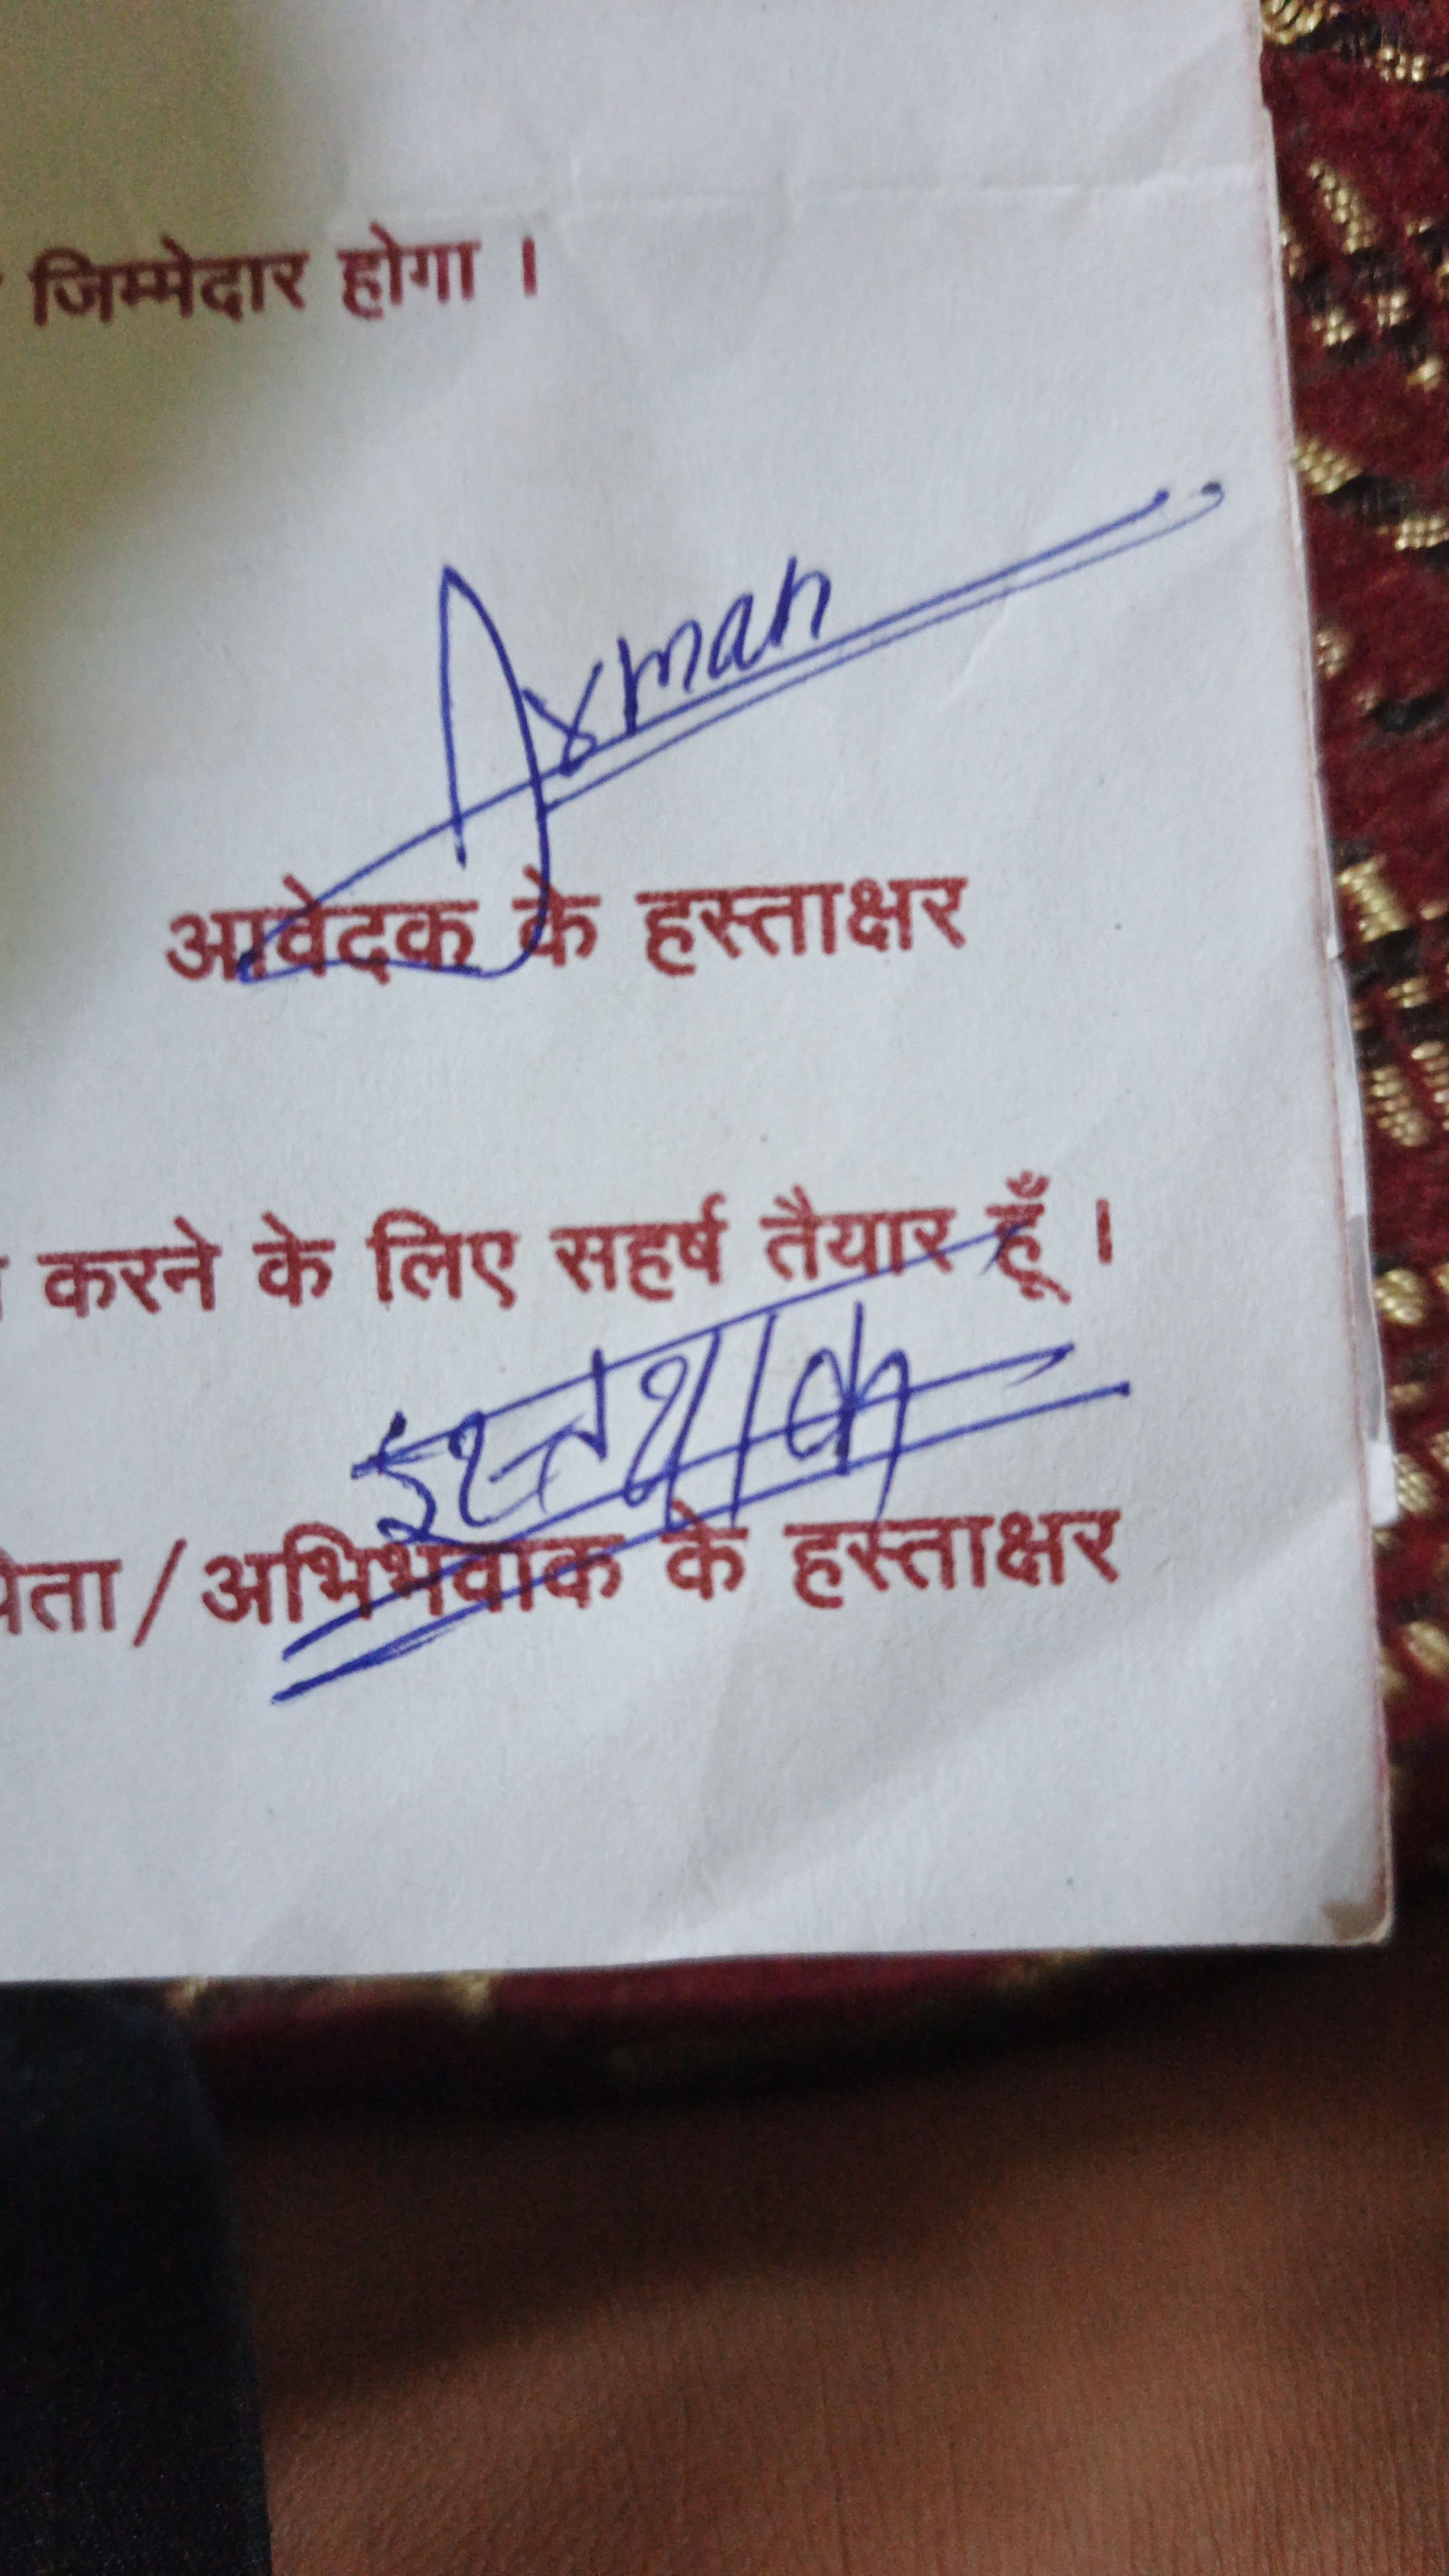 जिम्मेदार होगा ।
Arman
आवेदक के हस्ताक्षर
करने के लिए सहर्ष तैयार हूँ ।
पिता/अभिभवाक के हस्ताक्षर